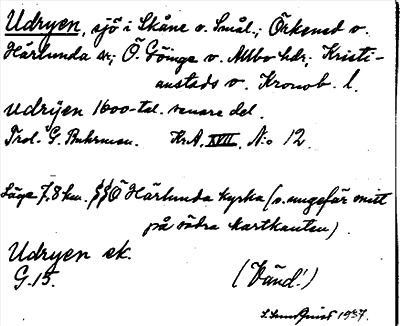 Udryen, sjö i Skåne o. Smål.; Örkened o.
Härlunda sn; Ö. Göinge o. Allbo hdr; Kristi-
anstads o. Kronob. l.
Udrÿen 1600-tal. senare del.
Trol. G. Buhrman. Kr.A. XVII, N:o 12.
Läge 7,8 km. SSÖ Härlunda kyrka (o. ungefär mitt
på södra kartkanten).
Udryen ek.
G.15.
(Vänd!)
S. Sundquist 1937.